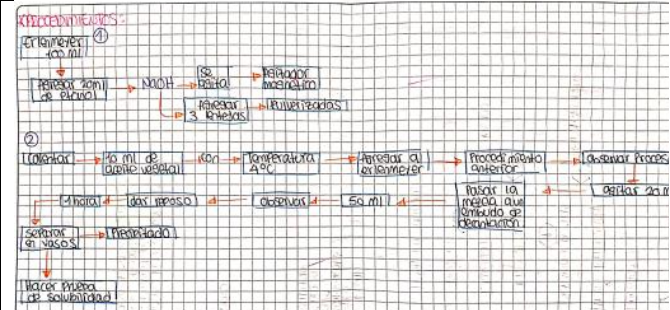 PROCEDIMIENTOS:
①
Erlenmeyer
100 ml
Agregar 20ml
de etanol
NaOH
se
agita
Agitador
magnético
Agregar
3 lentejas
Pulverizadas
②
Calentar
10 ml de
aceite vegetal
con
Temperatura
4°C
Agregar al
erlenmeyer
Procedimiento
anterior
observar Proces
agitar 20 m
Pasar la
mezcla a un
embudo de
decantación
50 ml
observar
dar reposo
1 hora
separar
en vasos
Precipitado
Hacer Prueba
de solubilidad